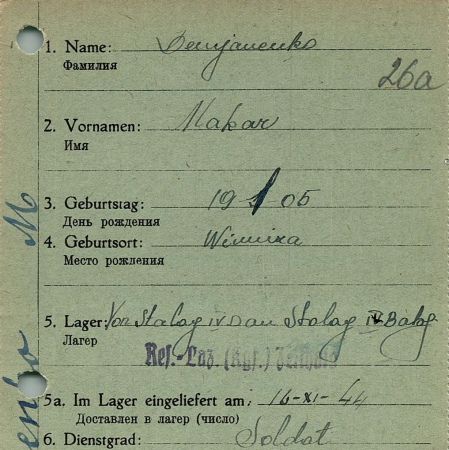 1. Name: Demjanenko
Фамилия
26a
2. Vornamen: Makar
Имя
3. Geburtstag: 19 05
День рождения
4. Geburtsort: Winniza
Место рождения
5. Lager: Von Stalag IV D an Stalag IV B
Лагер
Res.-Laz. (Kgf.) Zeithain
5a. Im Lager eingeliefert am: 14-XI-44
Доставлен в лагер (число)
6. Dienstgrad: Soldat
enko M